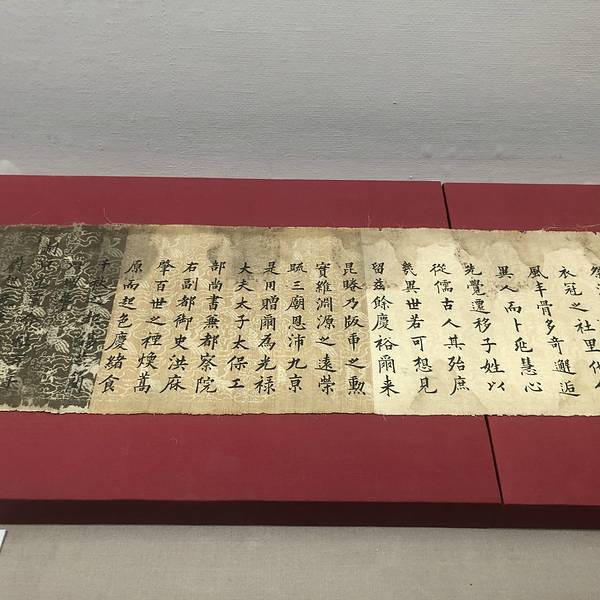 衣冠之社里
風丰骨多奇邂逅
異人而卜兆慧心
先覺遷移子姓以
從儒古人其殆庶
幾異世若可想見
留茲餘慶裕爾来
昆睠乃阪車之勲
寶維淵源之遠榮
疏三廟恩沛九京
是用贈爾為光禄
大夫太子太保工
部尚書兼都察院
右副都御史洪庥
肇百世之禋燠蒿
原而起色慶緒食
千秋